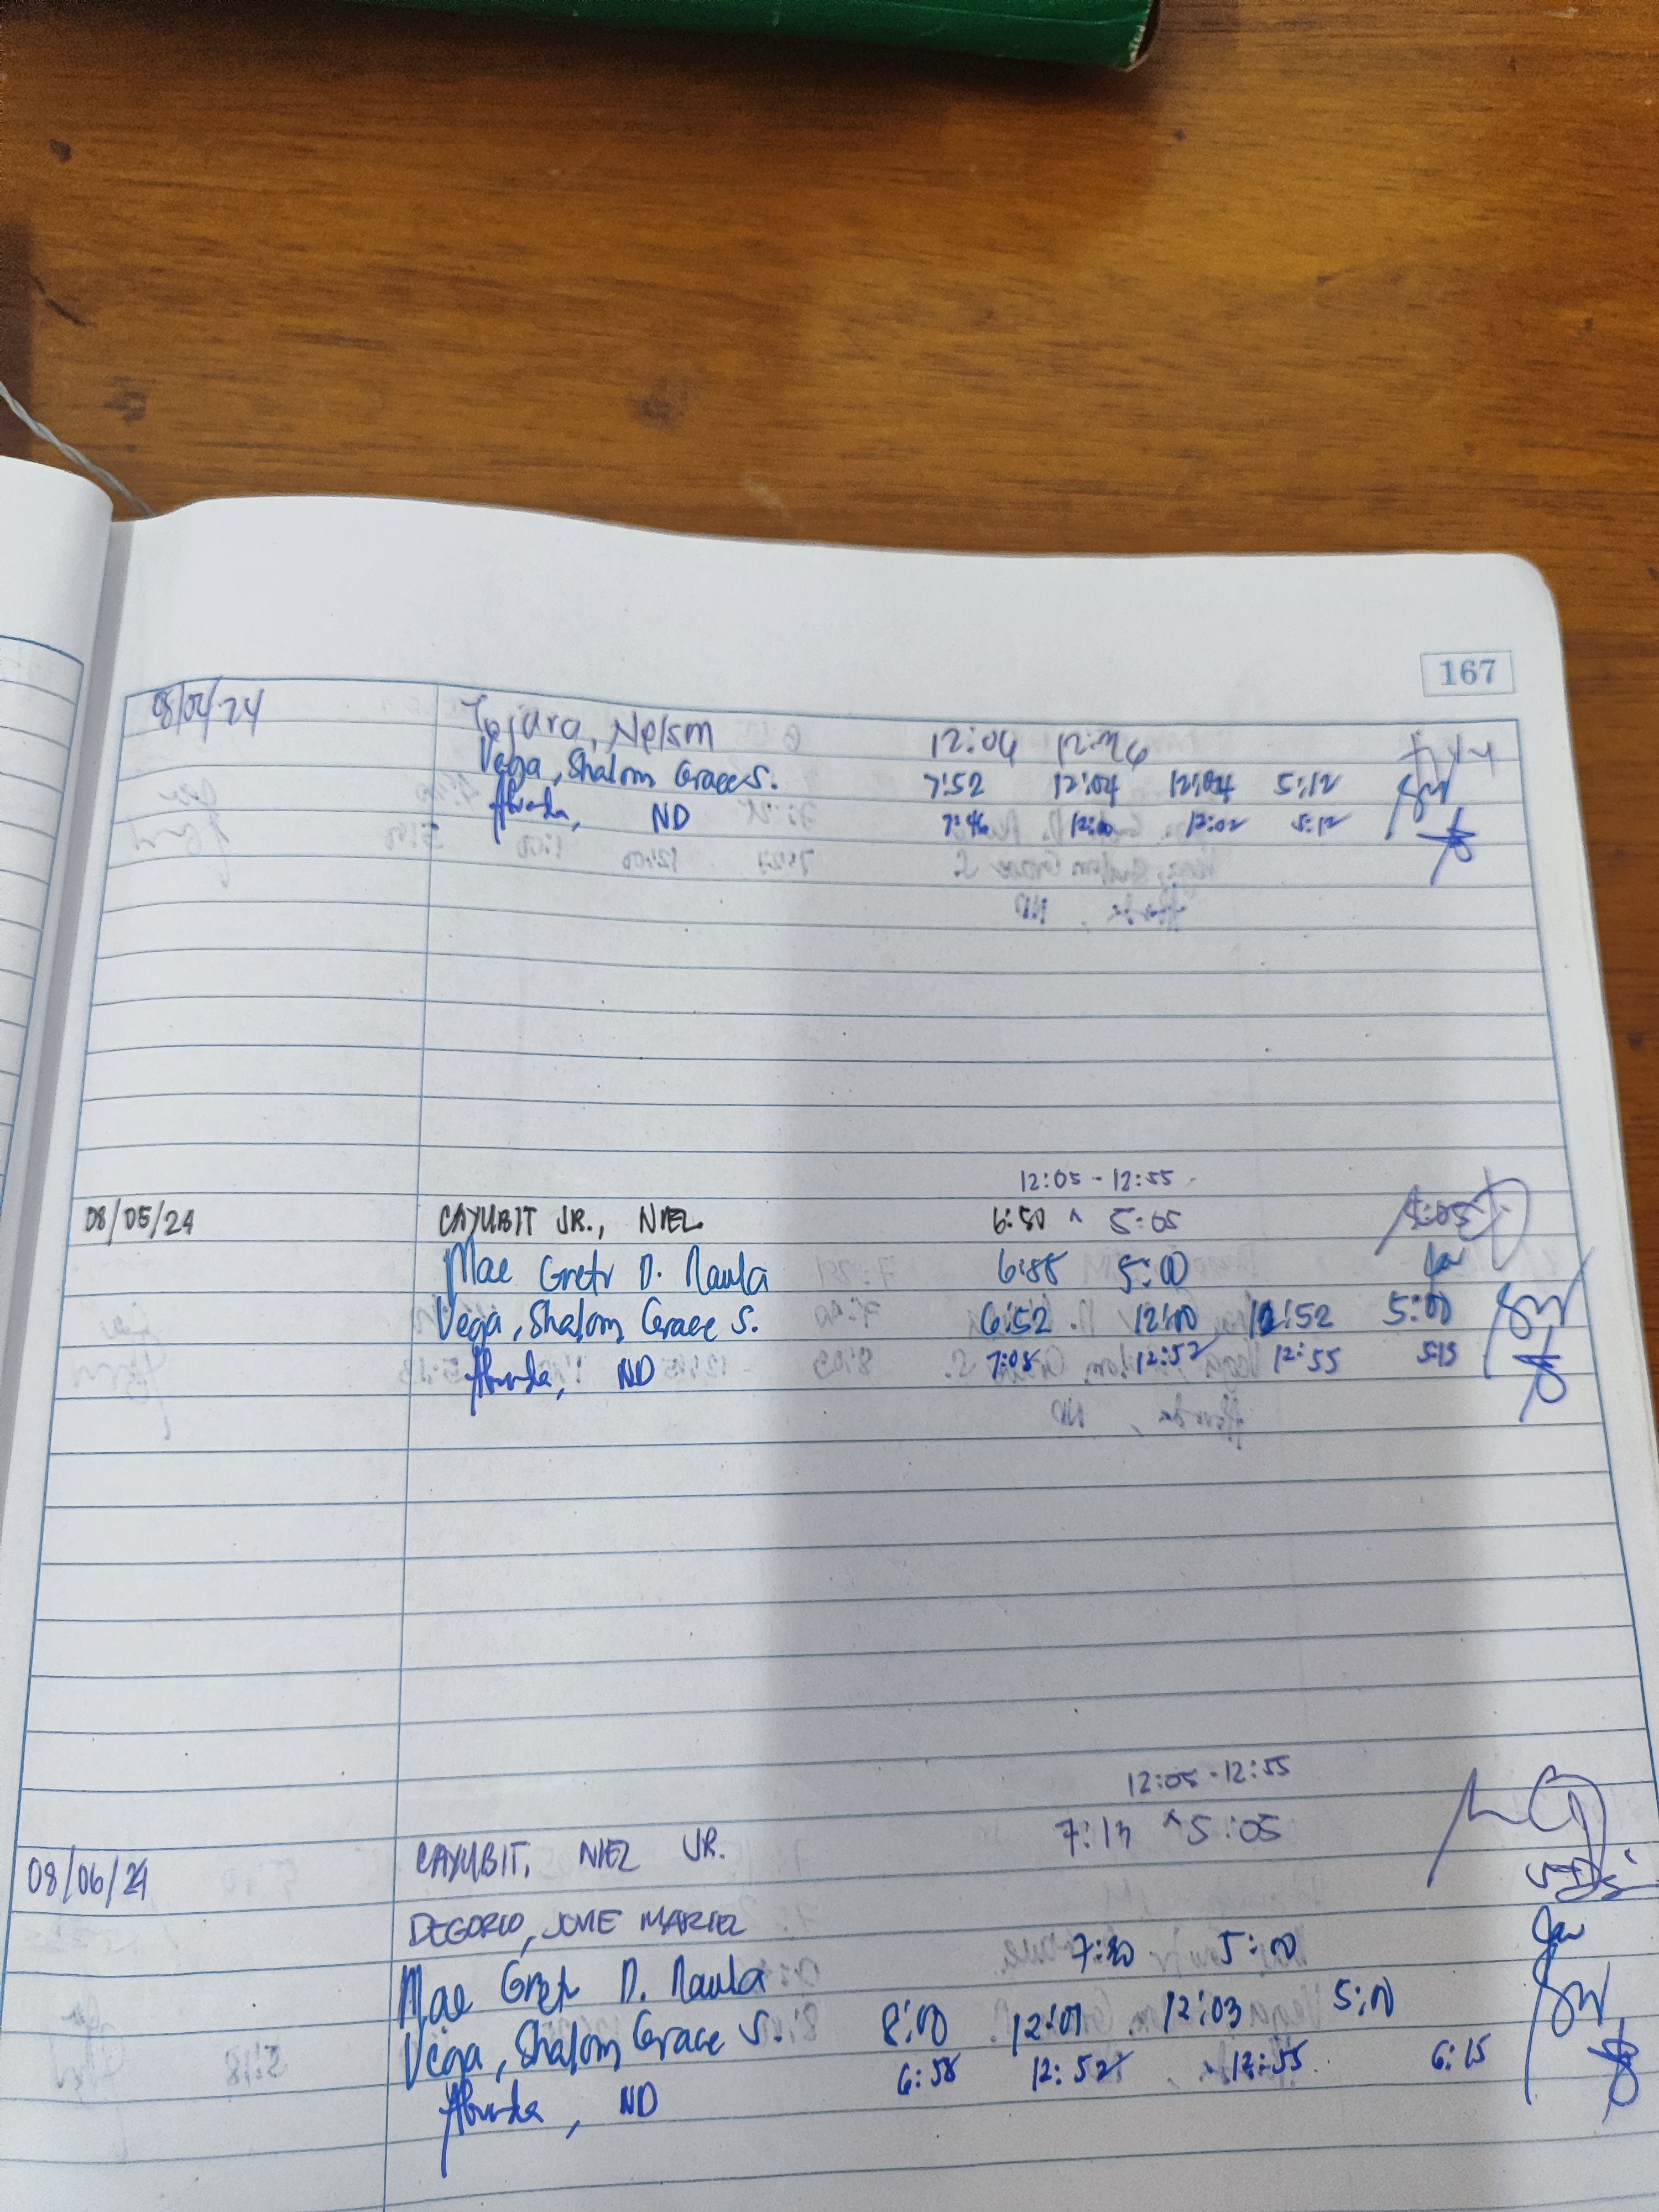 167
Tajara, Nelson 12:04
Vega, Shalom Grace S. 7:52 12:04 12:04 5:12
Abunda, ND 7:46 12:00 12:02 5:12
12:05 - 12:55
08/05/24 CAYUBIT JR., NIEL 6:50 ^ 5:05
Mae Gretr D. Naula 5:00
Vega, Shalom Grace S. 6:52 12:00 12:52 5:00
Abunda, ND 7:05 12:52 12:55 5:15
12:05 - 12:55
7:13 ^ 5:05
08/06/24 CAYUBIT, NIEL JR.
DEGORIO, JOVIE MARIEL
Mae Gretr D. Naula 7:20 5:00
Vega, Shalom Grace S. 8:00 12:01 12:03 5:00
Abunda, ND 6:58 12:52 12:55 6:15